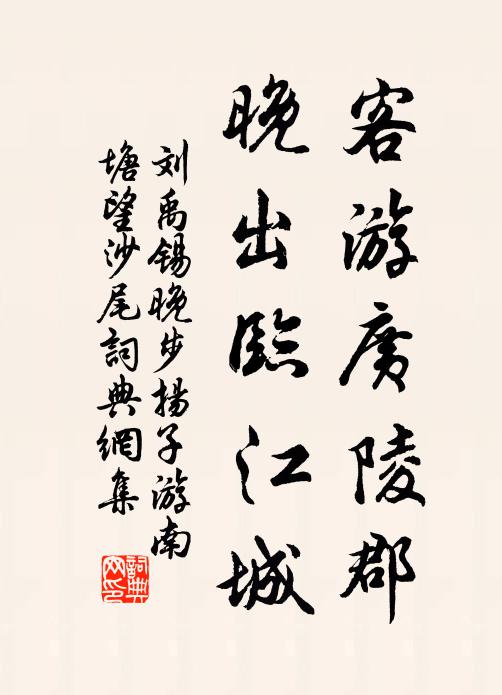 客游廣陵郡
晚出臨江城
刘禹錫晚步揚子游南
塘望沙尾詞典網集
詞典
网印